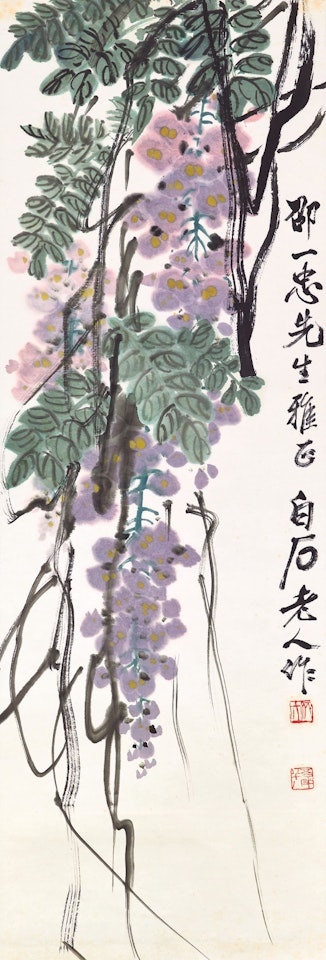 邵一惠先生雅正 白石老人作